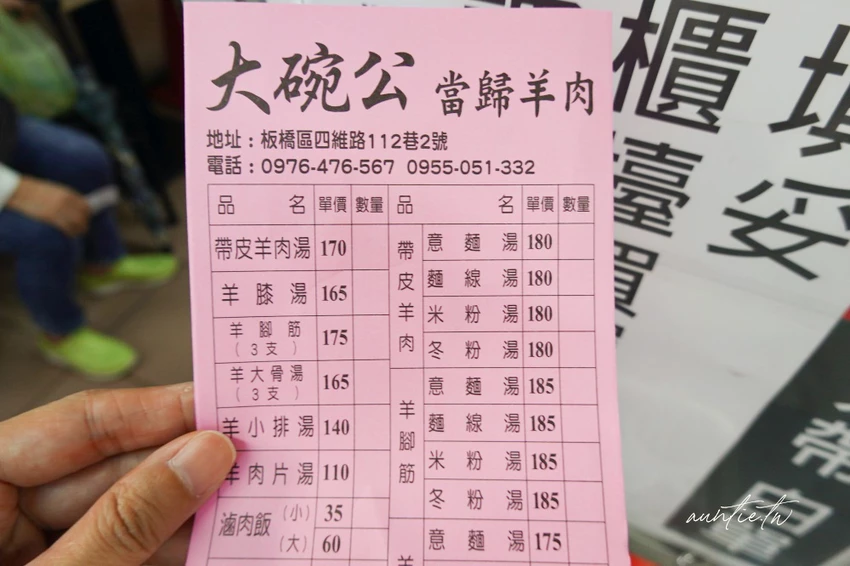 大碗公 當歸羊肉
地址：板橋區四維路112巷2號
電話：0976-476-567 0955-051-332
品名 單價 數量 品名 單價 數量
帶皮羊肉湯 170
羊膝湯 165
羊腳筋（3支） 175
羊大骨湯（3支） 165
羊小排湯 140
羊肉片湯 110
滷肉飯 （小） 35
（大） 60
帶皮羊肉
意麵湯 180
麵線湯 180
米粉湯 180
冬粉湯 180
羊腳筋
意麵湯 185
麵線湯 185
米粉湯 185
冬粉湯 185
羊
意麵湯 175
櫃檯
填妥
帶
auntie.tw